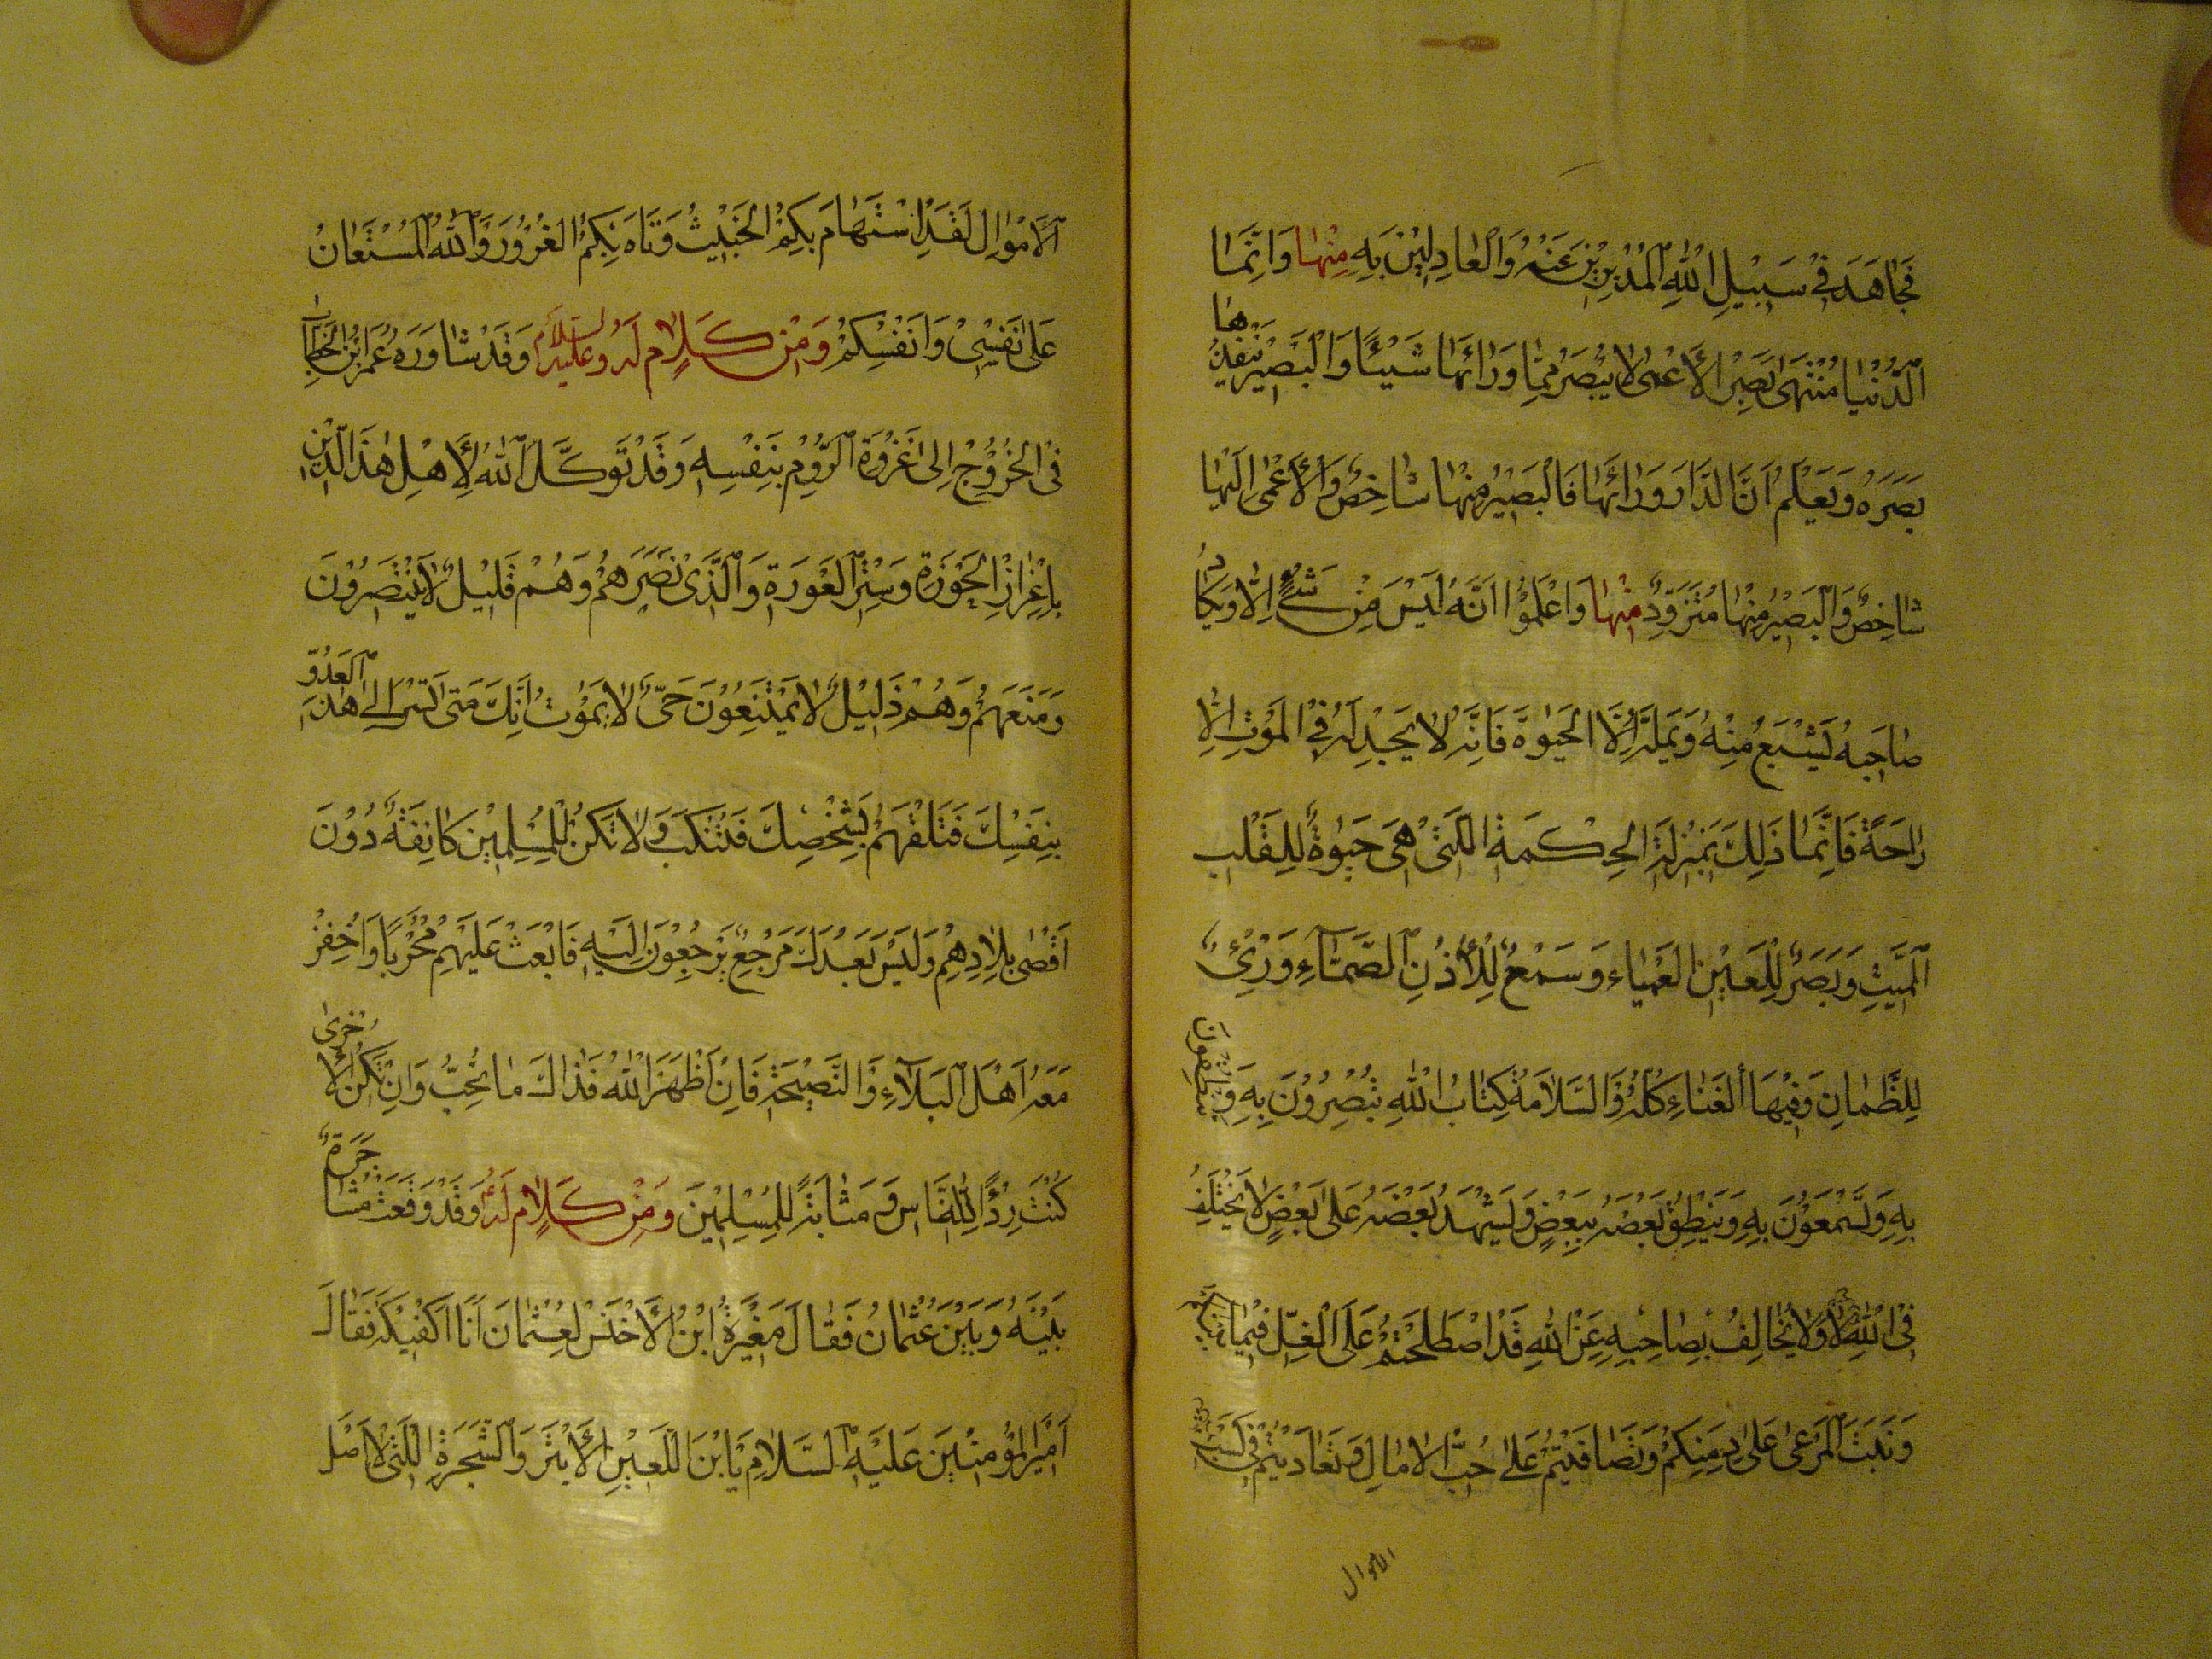 فَجٰاهَدَ فِى سَبِيلِ اللّٰهِ الْمُدْبِرِيْنَ عَنْهُ وَالْعٰادِلِيْنَ بِهِ مِنْهٰا وَاِنَّمَا
الدُّنْيٰا مُنْتَهٰى بَصَرِ الْأَعْمٰى لاٰ يُبْصِرُ مِمّٰا وَرٰائَهٰا شَيْئًا وَالْبَصِيْرُ يَنْفُذُهٰا
بَصَرَهُ وَيَعْلَمُ اَنَّ الدّٰارَ وَرٰائَهٰا فَالْبَصِيْرُ مِنْهٰا شٰاخِصٌ وَالْأَعْمٰى اِلَيْهٰا
شٰاخِصٌ وَالْبَصِيْرُ مِنْهٰا مُتَزَوِّدٌ مِنْهٰا وَاعْلَمُوْا اَنَّهُ لَيْسَ مِنْ شَىْءٍ اِلاّٰ وَيَكٰادُ
صٰاحِبُهُ يَشْبَعُ مِنْهُ وَيَمَلُّهُ اِلَّا الْحَيٰوةَ فَاِنَّهُ لاٰ يَجِدُ لَهُ فِى الْمَوْتِ اِلاّٰ
رٰاحَةً فَاِنَّمٰا ذٰلِكَ بِمَنْزِلَةِ الْحِكْمَةِ الَّتِىْ هِىَ حَيٰوةٌ لِلْقَلْبِ
الْمَيِّتِ وَبَصَرٌ لِلْعَيْنِ الْعَمْيٰاءِ وَسَمْعٌ لِلْأُذُنِ الصَّمّٰاءِ وَرَىٌّ
لِلظَّمٰانِ وَفِيْهَا الْغَنٰاءُ كُلُّهُ وَالسَّلاٰمَةُ كِتٰابُ اللّٰهِ تُبْصِرُوْنَ بِهِ وَتَنْطِقُوْنَ
بِهِ وَتَسْمَعُوْنَ بِهِ وَيَنْطِقُ بَعْضُهُ بِبَعْضٍ وَيَشْهَدُ بَعْضُهُ عَلٰى بَعْضٍ لاٰ يَخْتَلِفُ
فِى اللّٰهِ وَلاٰ يُخٰالِفُ بِصٰاحِبِهِ عَنِ اللّٰهِ قَدِ اصْطَلَحْتُمْ عَلَى الْغِلِّ فِيْمٰا بَيْنَكُمْ
وَنَبَتَ الْمَرْعٰى عَلٰى دِمَنِكُمْ وَتَصٰافَيْتُمْ عَلٰى حُبِّ الْاٰمٰالِ وَتَعٰادَيْتُمْ فِى كَسْبِ
الاموال
الْاَمْوٰالِ لَقَدِ اسْتَهٰامَ بِكُمُ الْخَبِيْثُ وَتَاهَ بِكُمُ الْغُرُوْرُ وَاللّٰهُ الْمُسْتَعٰانُ
عَلٰى نَفْسِىْ وَاَنْفُسِكُمْ وَمِنْ كَلاٰمٍ لَهُ عَلَيْهِ السَّلاٰمُ وَقَدْ شٰاوَرَهُ عُمَرُ ابْنُ الْخَطّٰابِ
فِى الْخُرُوْجِ اِلٰى غَزْوَةِ الرُّوْمِ بِنَفْسِهِ وَقَدْ تَوَكَّلَ اللّٰهُ لِأَهْلِ هٰذَا الدِّيْنِ
بِاِعْزٰازِ الْحَوْزَةِ وَسَتْرِ الْعَوْرَةِ وَالَّذِىْ نَصَرَهُمْ وَهُمْ قَلِيْلٌ لاٰ يَنْتَصِرُوْنَ
وَمَنَعَهُمْ وَهُمْ ذَلِيْلٌ لاٰ يَمْتَنِعُوْنَ حَىٌّ لاٰ يَمُوْتُ اِنَّكَ مَتٰى تَسِرْ اِلٰى هٰذَا الْعَدُوِّ
بِنَفْسِكَ فَتَلْقَهُمْ بِشَخْصِكَ فَتُنْكَبْ وَلاٰ تَكُنْ لِلْمُسْلِمِيْنَ كٰانِفَةٌ دُوْنَ
اَقْصٰى بِلاٰدِهِمْ وَلَيْسَ بَعْدَكَ مَرْجِعٌ يَرْجِعُوْنَ اِلَيْهِ فَابْعَثْ عَلَيْهِمْ مُحْرِبًا وَاحْفِزْ
مَعَهُ اَهْلَ الْبَلاٰءِ وَالنَّصِيْحَةِ فَاِنْ اَظْهَرَ اللّٰهُ فَذٰاكَ مٰا تُحِبُّ وَاِنْ تَكُنِ الْأُخْرٰى
كُنْتَ رِدْءًا لِلنّٰاسِ وَمَثٰابَةً لِلْمُسْلِمِيْنَ وَمِنْ كَلاٰمٍ لَهُ وَقَدْ وَقَعَتْ مُشٰاجَرَةٌ
بَيْنَهُ وَبَيْنَ عُثْمٰانَ فَقٰالَ مُغَيْرَةُ ابْنُ الْأَخْنَسِ لِعُثْمٰانَ اَنَا اَكْفِيْكَهُ فَقٰالَ
اَمِيْرُ الْمُؤْمِنِيْنَ عَلَيْهِ السَّلاٰمُ يَا ابْنَ اللَّعِيْنِ الْأَبْتَرِ وَالشَّجَرَةِ الَّتِىْ لاٰ اَصْلَ